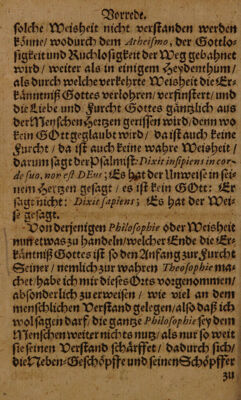 Vorrede.
solche Weisheit nicht verstanden werden
könne/ wodurch dem Atheismo, der Gottlo-
sigkeit und Ruchlosigkeit der Weg gebahnet
wird/ weiter als in einigem Heydenthum/
als durch welche verkehrte Weisheit die Er-
känntniß Gottes verlohren/ verfinstert/ und
die Liebe und Furcht Gottes gäntzlich aus
der Menschen Hertzen gerissen wird/ denn wo
kein GOtt geglaubt wird/ da ist auch keine
Furcht/ da ist auch keine wahre Weisheit/
darum sagt der Psalmist: Dixit insipiens in cor-
de suo, nor est DEus; Es hat der Unweise in sei-
nem Hertzen gesagt/ es ist kein GOtt: Er
sagt nicht: Dixit sapiens; Es hat der Wei-
se gesagt.
Von derjenigen Philosophie oder Weisheit
nun etwas zu handeln/ welcher Ende die Er-
känntniß Gottes ist/ so den Anfang zur Furcht
Seiner/ nemlich zur wahren Theosophie ma-
chet/ habe ich mir dieses Orts vorgenommen/
absonderlich zu erweisen/ wie viel an dem
menschlichen Verstand gelegen/ also daß ich
wol sagen darf/ die gantze Philosophie sey dem
Menschen weiter nichts nutz/ als nur so weit
sie seinen Verstand schärffet/ dadurch sich/
die Neben-Geschöpffe und seinen Schöpffer
zu